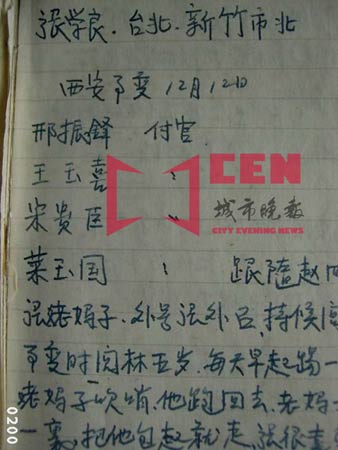 张学良. 台北. 新竹市北
西安事变 12月12日
邢振铎 付官
王玉喜 〃
宋贵臣 〃
CEN
城市晚报
CITY EVENING NEWS
菜玉国 〃 跟随赵四
张老妈子. 外号张外吕, 持候
事变时闾林五岁. 每天早起踢一
老妈子吹哨, 他跑回去. 老妈
一裹, 把他包起就走, 张很
0200